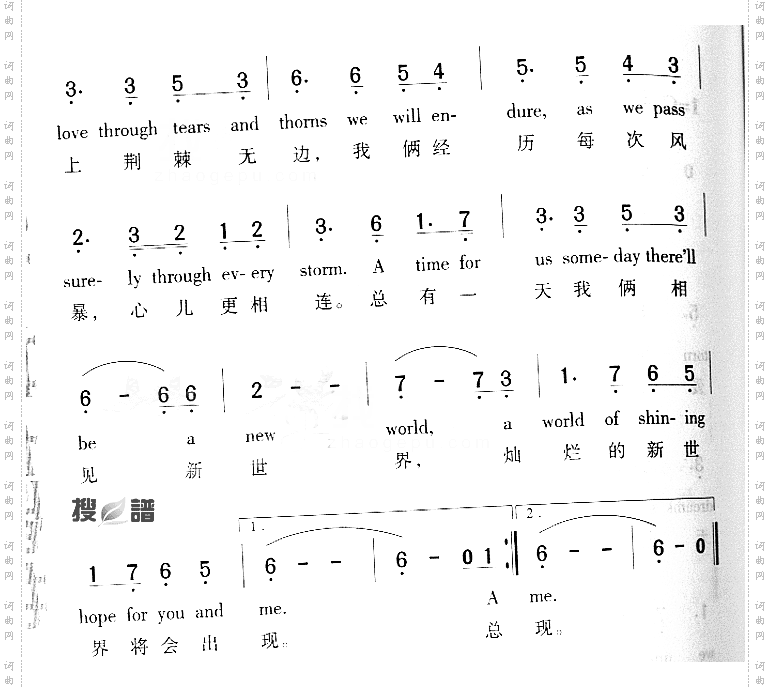 3. 3 5 3 | 6. 6 5 4 | 5. 5 4 3 |
love through tears and thorns we will en- dure, as we pass
上 荆 棘 无 边, 我 俩 经 历 每 次 风
2. 3 2 1 2 | 3. 6 1. 7 | 3. 3 5 3 |
sure- ly through ev- ery storm. A time for us some- day there'll
暴, 心 儿 更 相 连。 总 有 一 天 我 俩 相
6 - 6 6 | 2 - - | 7 - 7 3 | 1. 7 6 5 |
be a new world, a world of shin- ing
见 新 世 界, 灿 烂 的 新 世
搜 譜
1. 2.
1 7 6 5 | 6 - - | 6 - 0 1 :‖ 6 - - | 6 - 0 ‖
hope for you and me. A me.
界 将 会 出 现。 总 现。
词曲网